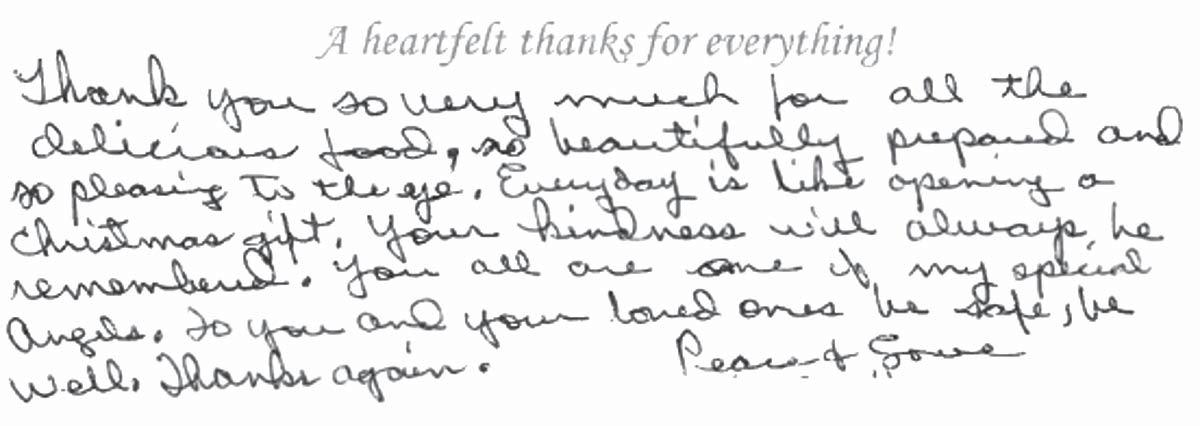 A heartfelt thanks for everything!
Thank you so very much for all the
delicious food, so beautifully prepared and
so pleasing to the eye. Everyday is like opening a
Christmas gift. Your kindness will always be
remembered. You all are one of my special
Angels. To you and your loved ones be safe, be
well. Thanks again. Peace &